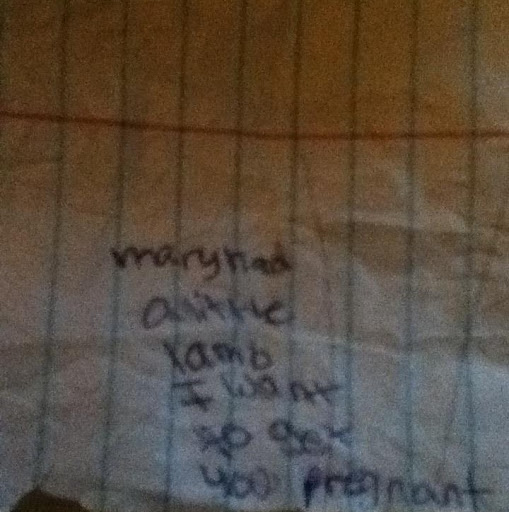 mary had
a little
lamb
I want
so get
you pregnant